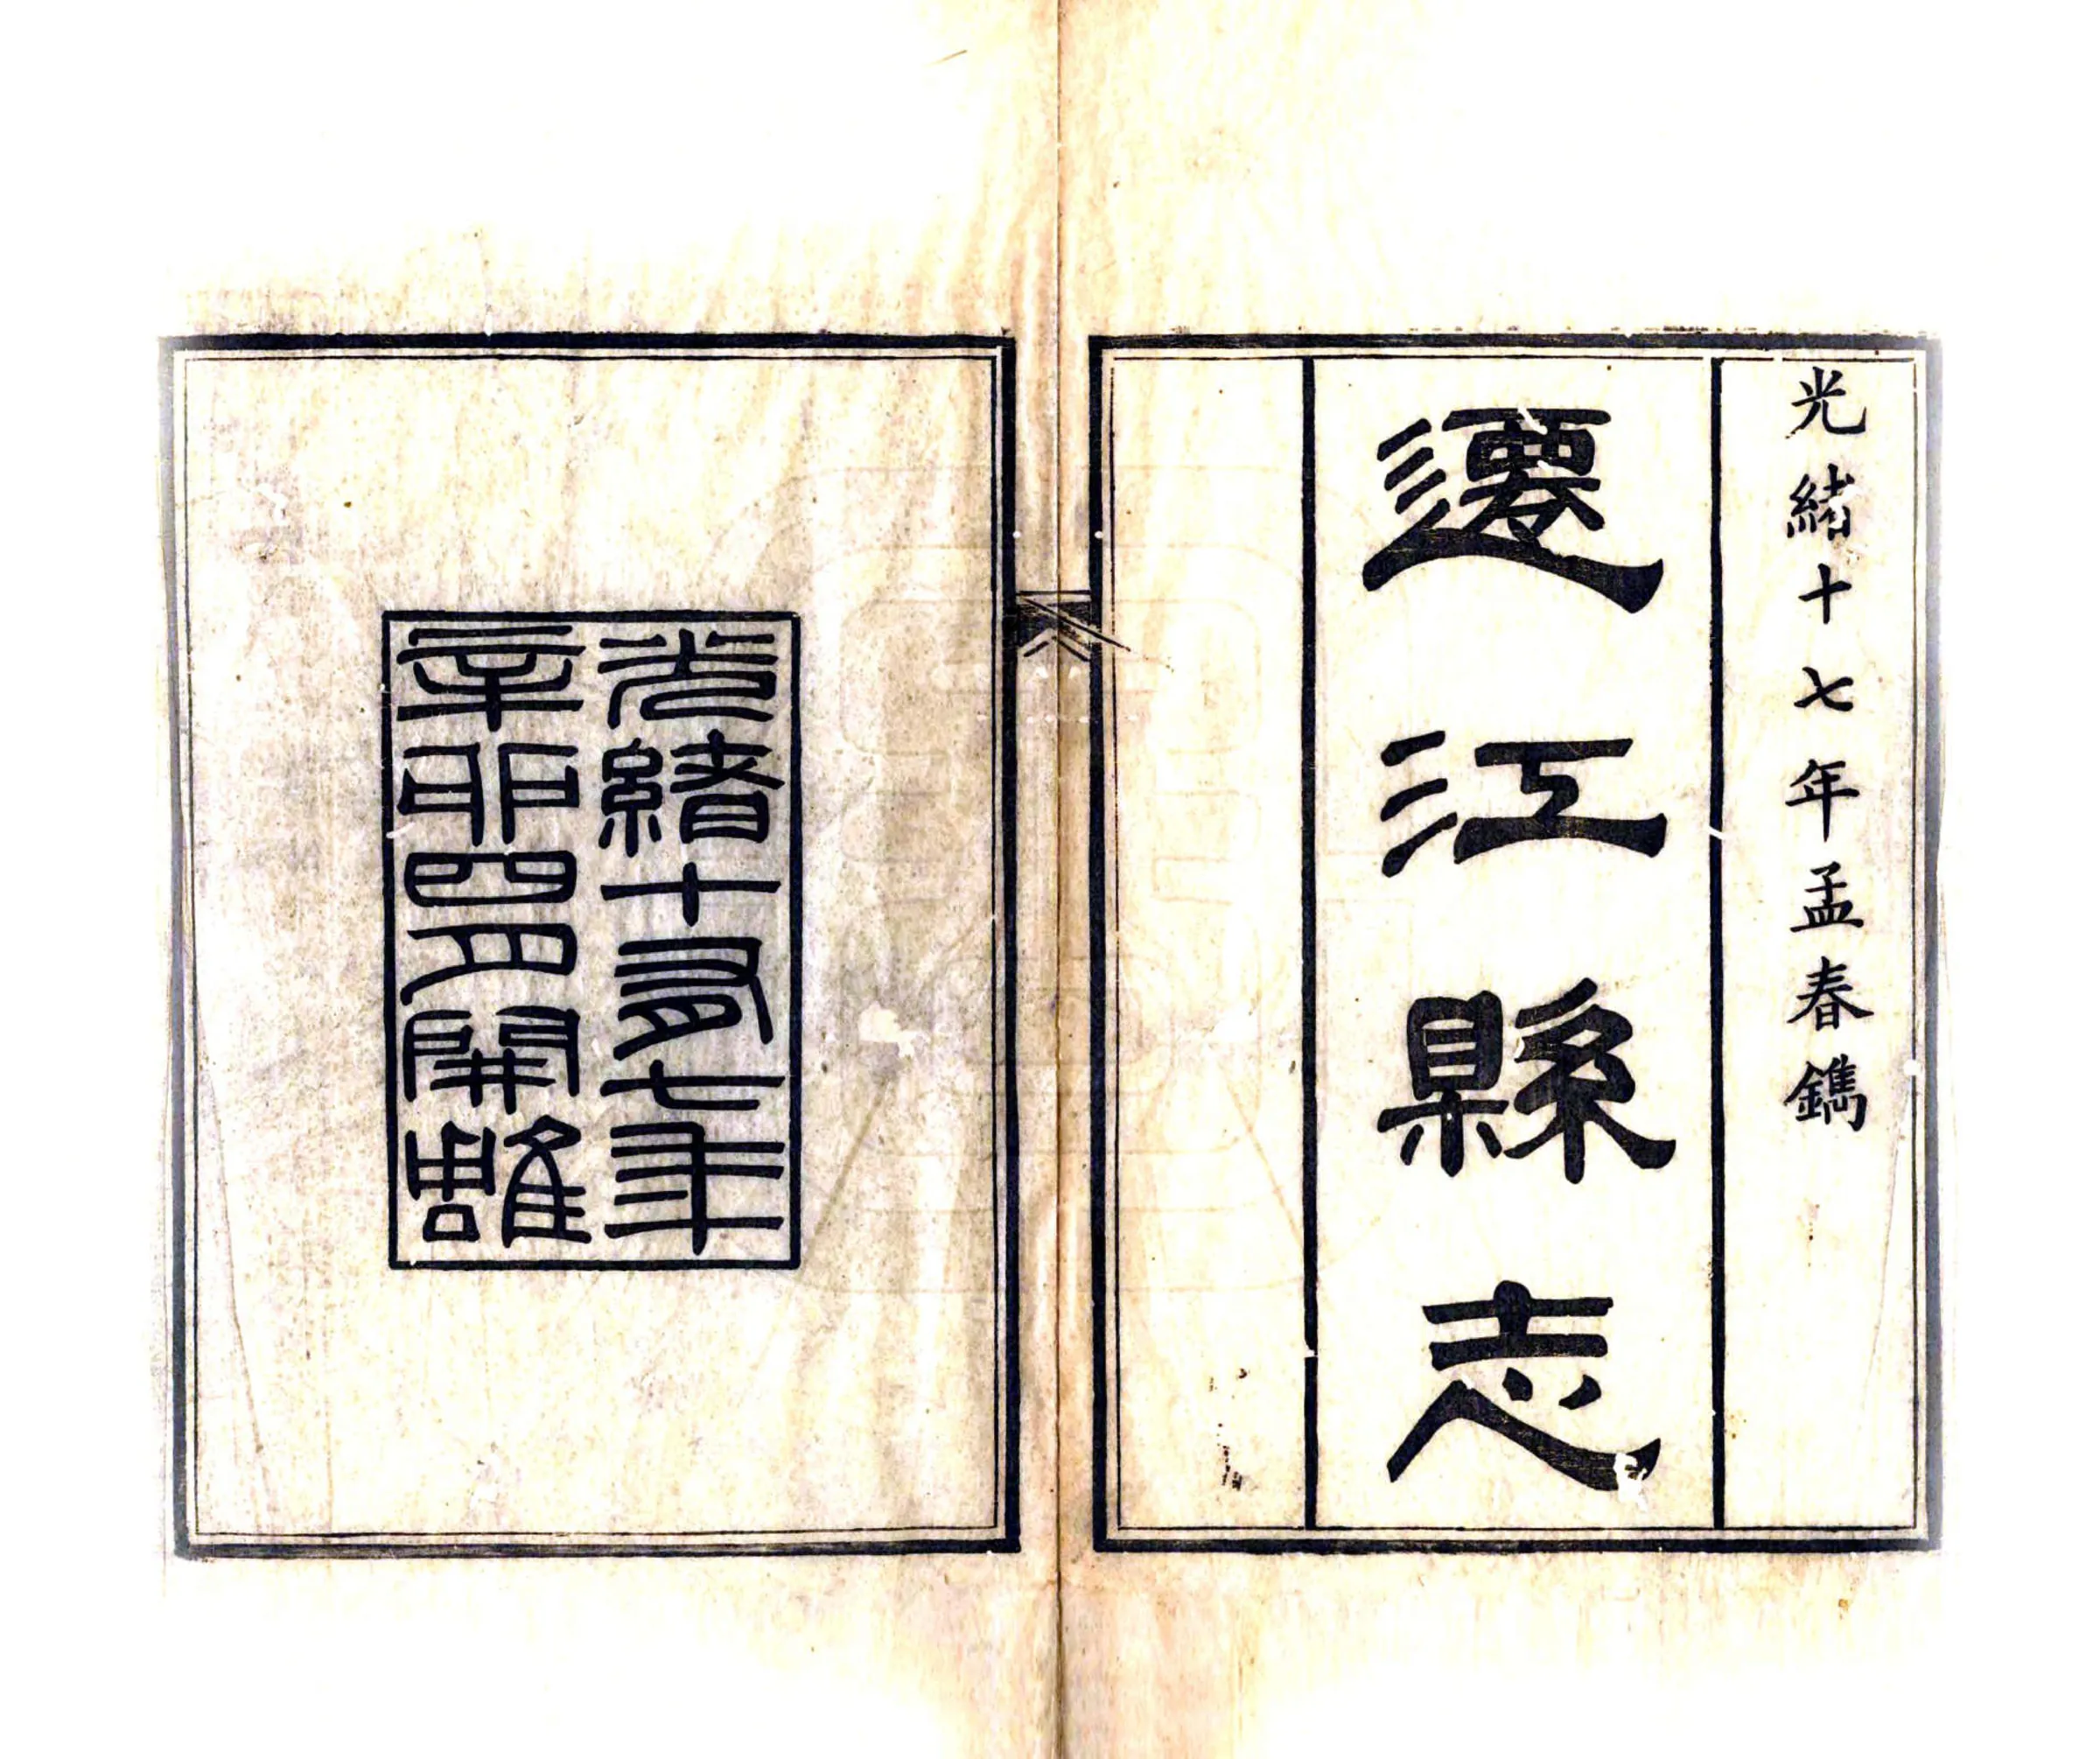 光緒十七年孟春鐫
遷江縣志
光緒十有七年
辛卯四月開雕